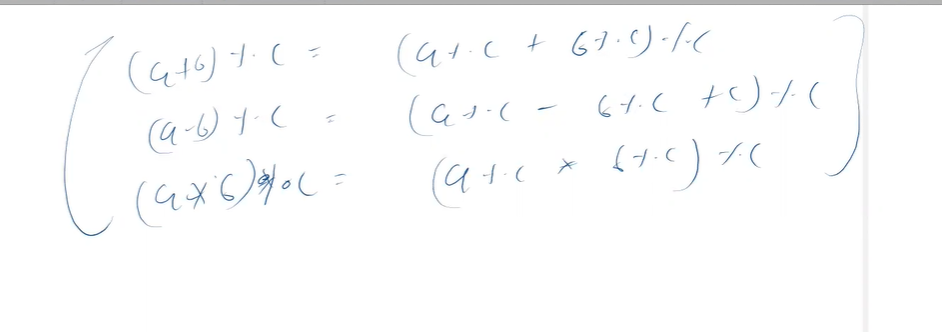 (a+b) % c = (a % c + b % c) % c
(a-b) % c = (a % c - b % c + c) % c
(a * b) % c = (a % c * b % c) % c